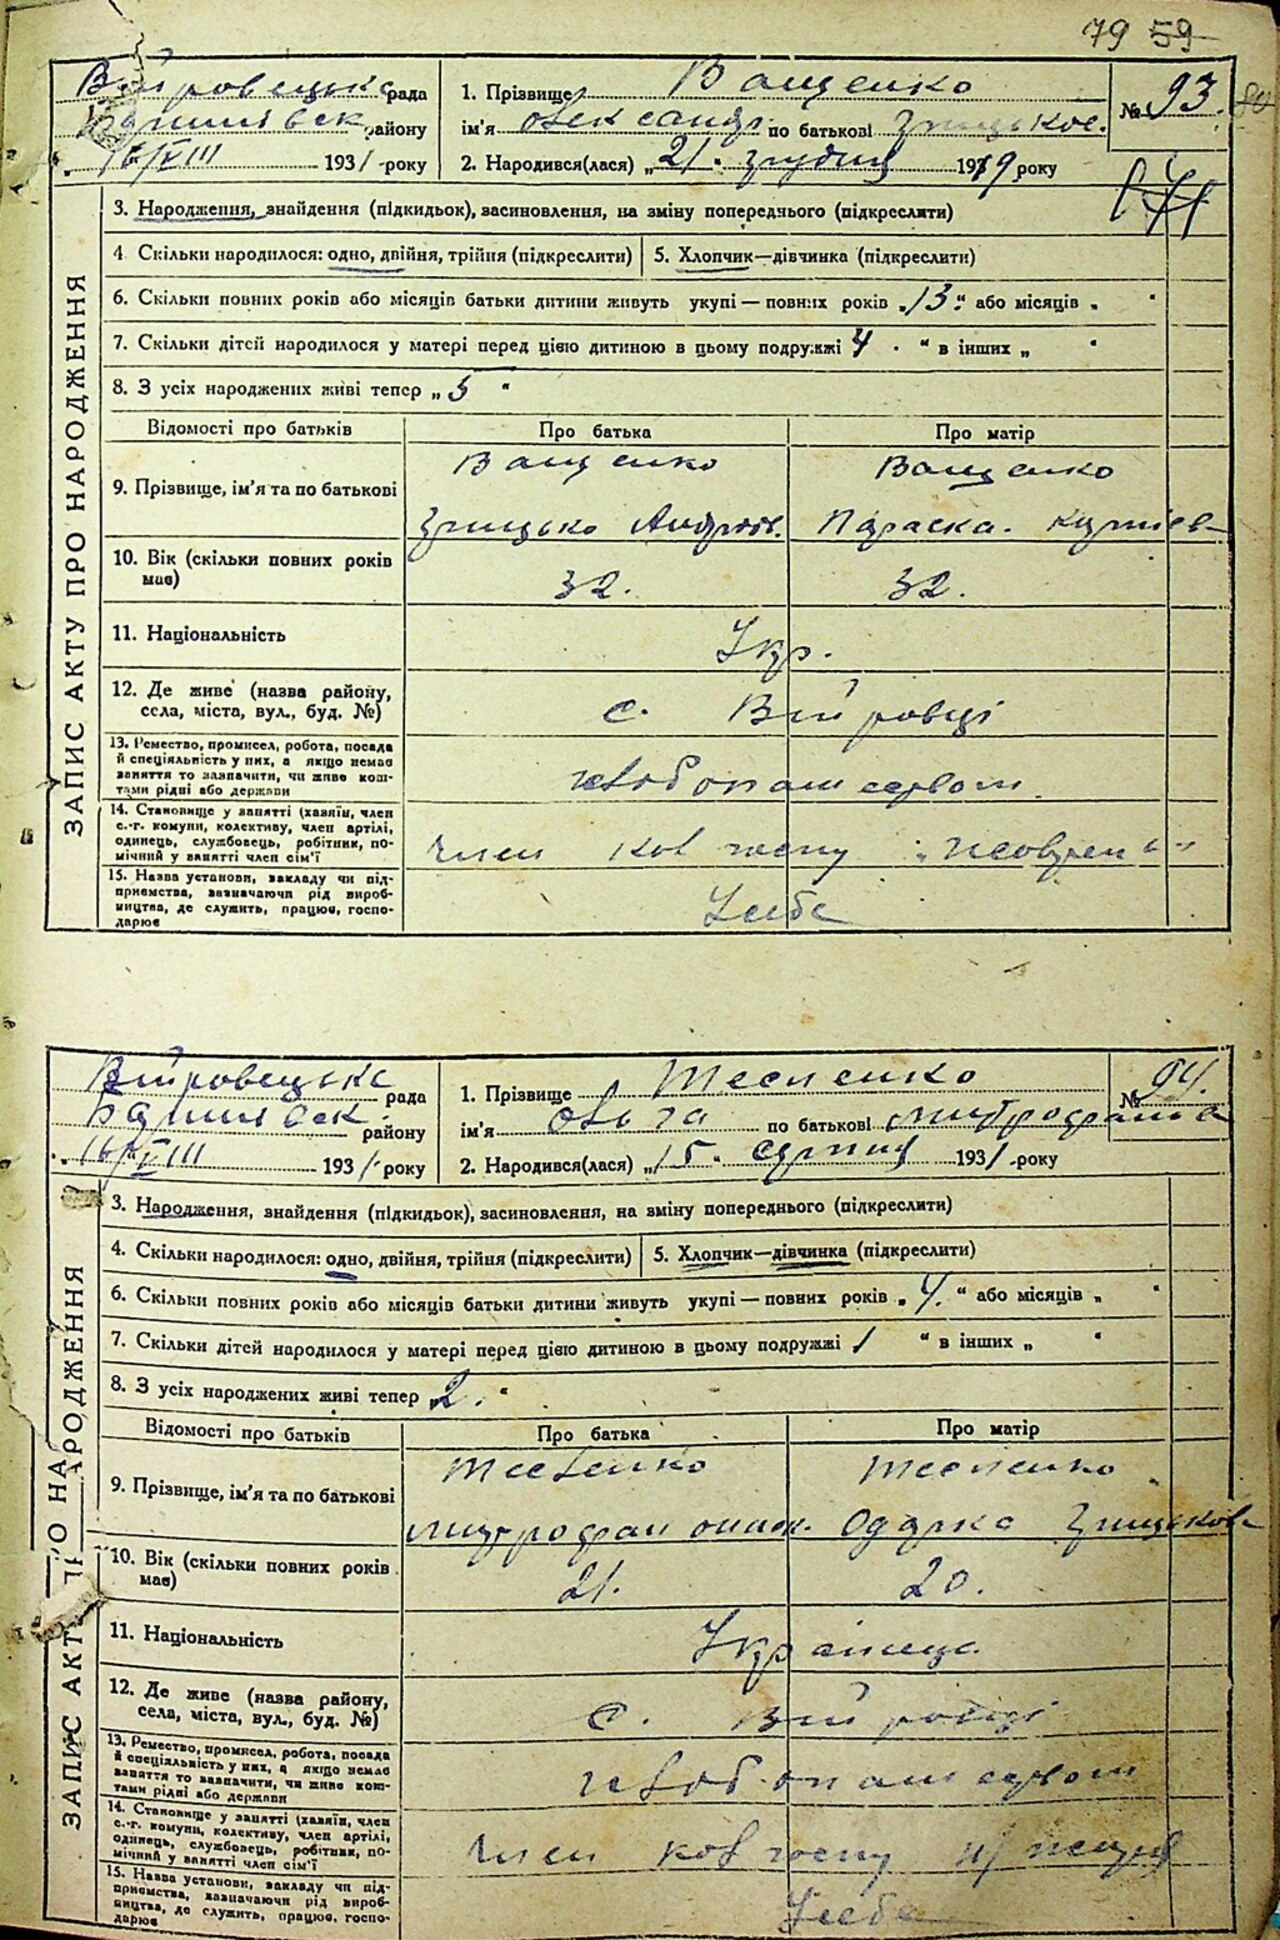 79 59
Війровецька рада
району
16/VIII 1931 року
1. Прізвище Ващенко
ім'я Олександр по батькові Грицьков.
2. Народився(лася) „21" грудня 1929 року
№ 93.
80
3. Народження, знайдення (підкидьок), засиновлення, на зміну попереднього (підкреслити)
4 Скільки народилося: одно, двійня, трійня (підкреслити)
5. Хлопчик—дівчинка (підкреслити)
6. Скільки повних років або місяців батьки дитини живуть укупі — повних років „13." або місяців „ "
7. Скільки дітей народилося у матері перед цією дитиною в цьому подружжі 4 . " в інших „ "
8. З усіх народжених живі тепер „5 "
ЗАПИС АКТУ ПРО НАРОДЖЕННЯ
Відомості про батьків
Про батька
Про матір
9. Прізвище, ім'я та по батькові
Ващенко
Грицько
Ващенко
Параска.
10. Вік (скільки повних років
має)
32.
32.
11. Національність
Укр.
12. Де живе (назва району,
села, міста, вул., буд. №)
с. Війровці
13. Ремество, промисел, робота, посада
й спеціяльність у них, а якщо немає
заняття то зазначити, чи живе кош-
тами рідні або держави
хлібопашеством.
14. Становище у занятті (хазяїн, член
с.-г. комуни, колективу, член артілі,
одинець, службовець, робітник, по-
мічний у занятті член сім'ї
член колгоспу
15. Назва установи, закладу чи під-
приємства, зазначаючи рід вироб-
ництва, де служить, працює, госпо-
дарює
У себе
Війровецька рада
району
16/VIII 1931 року
1. Прізвище Тесленко
ім'я Ольга по батькові Митрофанов
2. Народився(лася) „15" серпня 1931 року
№ 94.
3. Народження, знайдення (підкидьок), засиновлення, на зміну попереднього (підкреслити)
4. Скільки народилося: одно, двійня, трійня (підкреслити)
5. Хлопчик—дівчинка (підкреслити)
6. Скільки повних років або місяців батьки дитини живуть укупі — повних років „4. " або місяців „ "
7. Скільки дітей народилося у матері перед цією дитиною в цьому подружжі 1 " в інших „ "
8. З усіх народжених живі тепер „2. "
ЗАПИС АКТ ПРО НАРОДЖЕННЯ
Відомості про батьків
Про батька
Про матір
9. Прізвище, ім'я та по батькові
Тесленко
Митрофан
Тесленко
Одарка Грицьков
10. Вік (скільки повних років
має)
21.
20.
11. Національність
12. Де живе (назва району,
села, міста, вул., буд. №)
с. Війровці
13. Ремество, промисел, робота, посада
й спеціяльність у них, а якщо немає
заняття то зазначити, чи живе кош-
тами рідні або держави
хлібопашеством
14. Становище у занятті (хазяїн, член
с.-г. комуни, колективу, член артілі,
одинець, службовець, робітник, по-
мічний у занятті член сім'ї
член колгоспу
15. Назва установи, закладу чи під-
приємства, зазначаючи рід вироб-
ництва, де служить, працює, госпо-
дарює
У себе